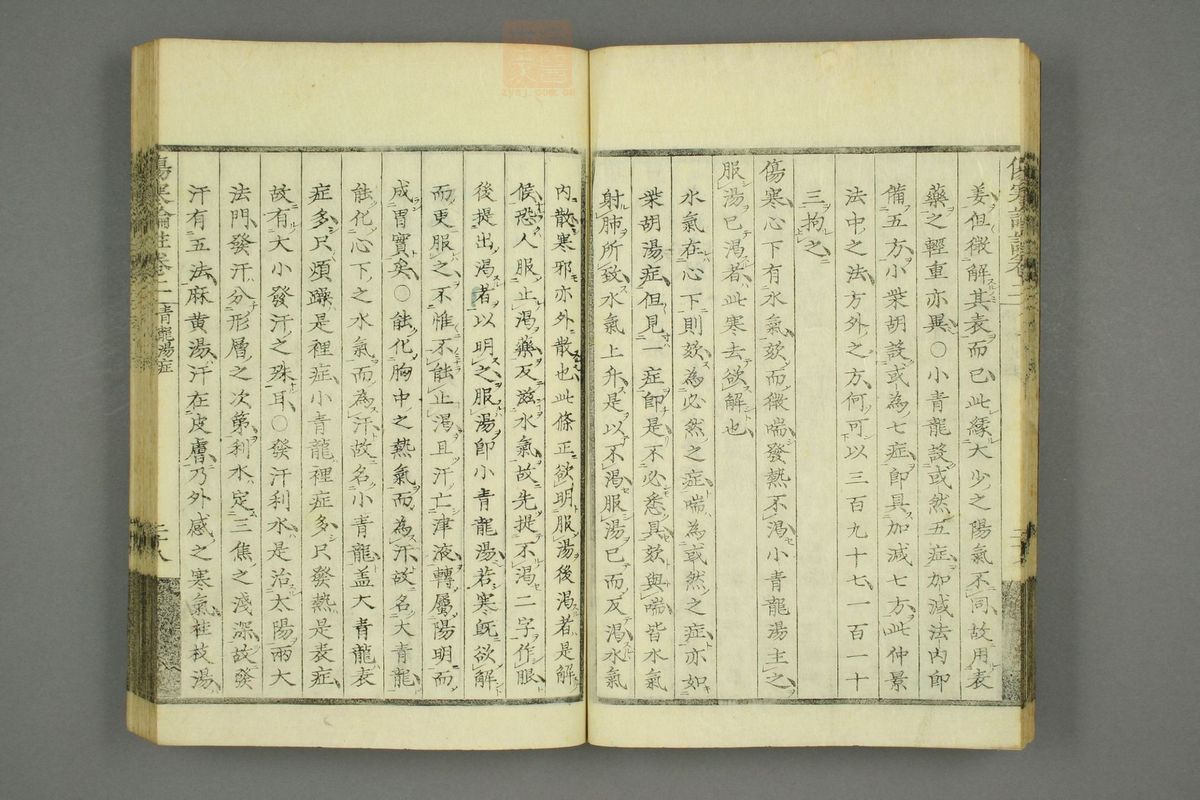 姜但微解其表而已此縁大少之陽氣不同故用表
藥之輕重亦異○小青龍設或然五症加減法內卽
備五方小柴胡設或為七症卽具加減七方此仲景
法中之法方外之方何可以三百九十七一百一十
三拘之
傷寒心下有水氣欬而微喘發熱不渴小青龍湯主之
服湯已渴者此寒去欲解也
水氣在心下則欬為必然之症喘為或然之症亦如
柴胡湯症但見一症卽是不必悉具欬與喘皆水氣
射肺所致水氣上升是以不渴服湯已而反渴水氣
內散寒邪亦外散也此條正欲明服湯後渴者是解
候恐人服止渴藥反滋水氣故先提不渴二字作眼
後提出渴者以明之服湯卽小青龍湯若寒既欲解
而更服之不惟不能止渴且汗亡津液轉屬陽明而
成胃實矣○能化胸中之熱氣而為汗故名大青龍
能化心下之水氣而為汗故名小青龍盖大青龍表
症多只煩躁是裡症小青龍裡症多只發熱是表症
故有大小發汗之殊耳○發汗利水是治太陽兩大
法門發汗分形層之次第利水定三焦之淺深故發
汗有五法麻黄湯汗在皮膚乃外感之寒氣桂枝湯
傷寒論註卷二 青龍湯症 二十八